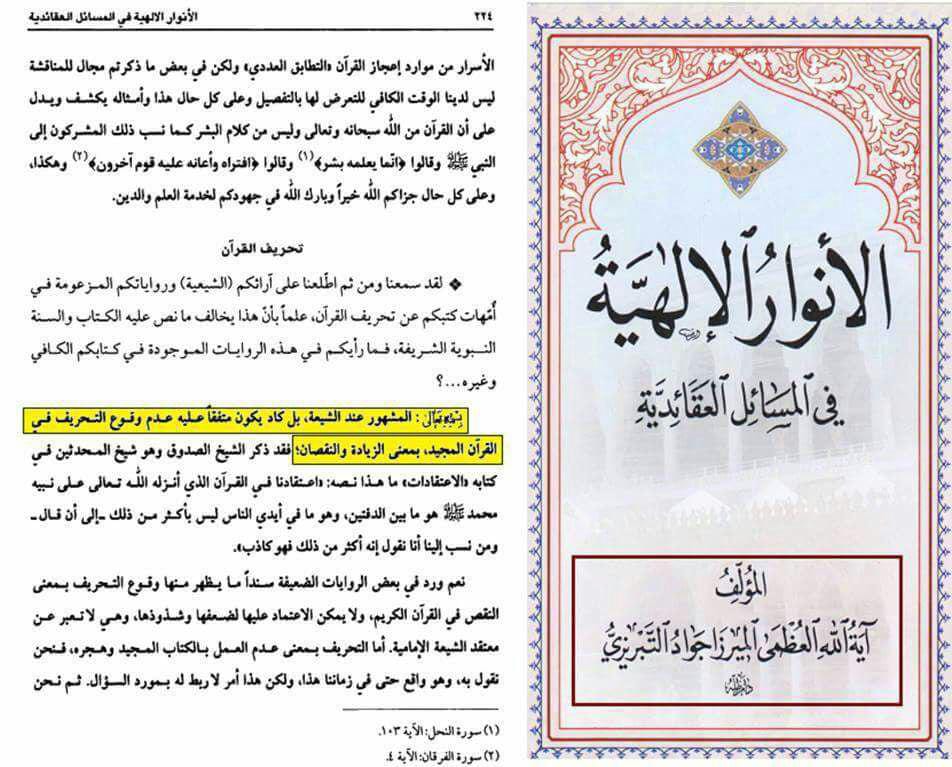 ٢٢٤
الأنوار الالهية في المسائل العقائدية
الأسرار من موارد إعجاز القرآن «التطابق العددي» ولكن في بعض ما ذكرتم مجال للمناقشة
ليس لدينا الوقت الكافي للتعرض لها بالتفصيل وعلى كل حال هذا وأمثاله يكشف ويدل
على أن القرآن من الله سبحانه وتعالى وليس من كلام البشر كما نسب ذلك المشركون إلى
النبي ﷺ وقالوا ﴿انّما يعلمه بشر﴾(١) وقالوا ﴿افتراه وأعانه عليه قوم آخرون﴾(٢) وهكذا،
وعلى كل حال جزاكم الله خيراً وبارك الله في جهودكم لخدمة العلم والدين.
تحريف القرآن
❖ لقد سمعنا ومن ثم اطّلعنا على آرائكم (الشيعية) ورواياتكم المزعومة في
أُمّهات كتبكم عن تحريف القرآن، علماً بأنّ هذا يخالف ما نص عليه الكتاب والسنة
النبوية الشريفة، فما رأيكم في هذه الروايات الموجودة في كتابكم الكافي
وغيره...؟
: المشهور عند الشيعة، بل كاد يكون متفقاً عليه عدم وقوع التحريف في
القرآن المجيد، بمعنى الزيادة والنقصان؛ فقد ذكر الشيخ الصدوق وهو شيخ المحدثين في
كتابه «الاعتقادات» ما هذا نصه: «اعتقادنا في القرآن الذي أنزله الله تعالى على نبيه
محمد ﷺ هو ما بين الدفتين، وهو ما في أيدي الناس ليس بأكثر من ذلك ـ إلى أن قال ـ
ومن نسب إلينا أنا نقول إنه أكثر من ذلك فهو كاذب».
نعم ورد في بعض الروايات الضعيفة سنداً ما يظهر منها وقوع التحريف بمعنى
النقص في القرآن الكريم، ولا يمكن الاعتماد عليها لضعفها وشذوذها، وهي لا تعبر عن
معتقد الشيعة الإمامية. أما التحريف بمعنى عدم العمل بالكتاب المجيد وهجره، فنحن
نقول به، وهو واقع حتى في زماننا هذا، ولكن هذا أمر لا ربط له بمورد السؤال. ثم نحن
(١) سورة النحل: الآية ١٠٣.
(٢) سورة الفرقان: الآية ٤.
الأنوار الإلهية
في المسائل العقائدية
المؤلف
آية الله العظمى الميرزا جواد التبريزي
دام ظله